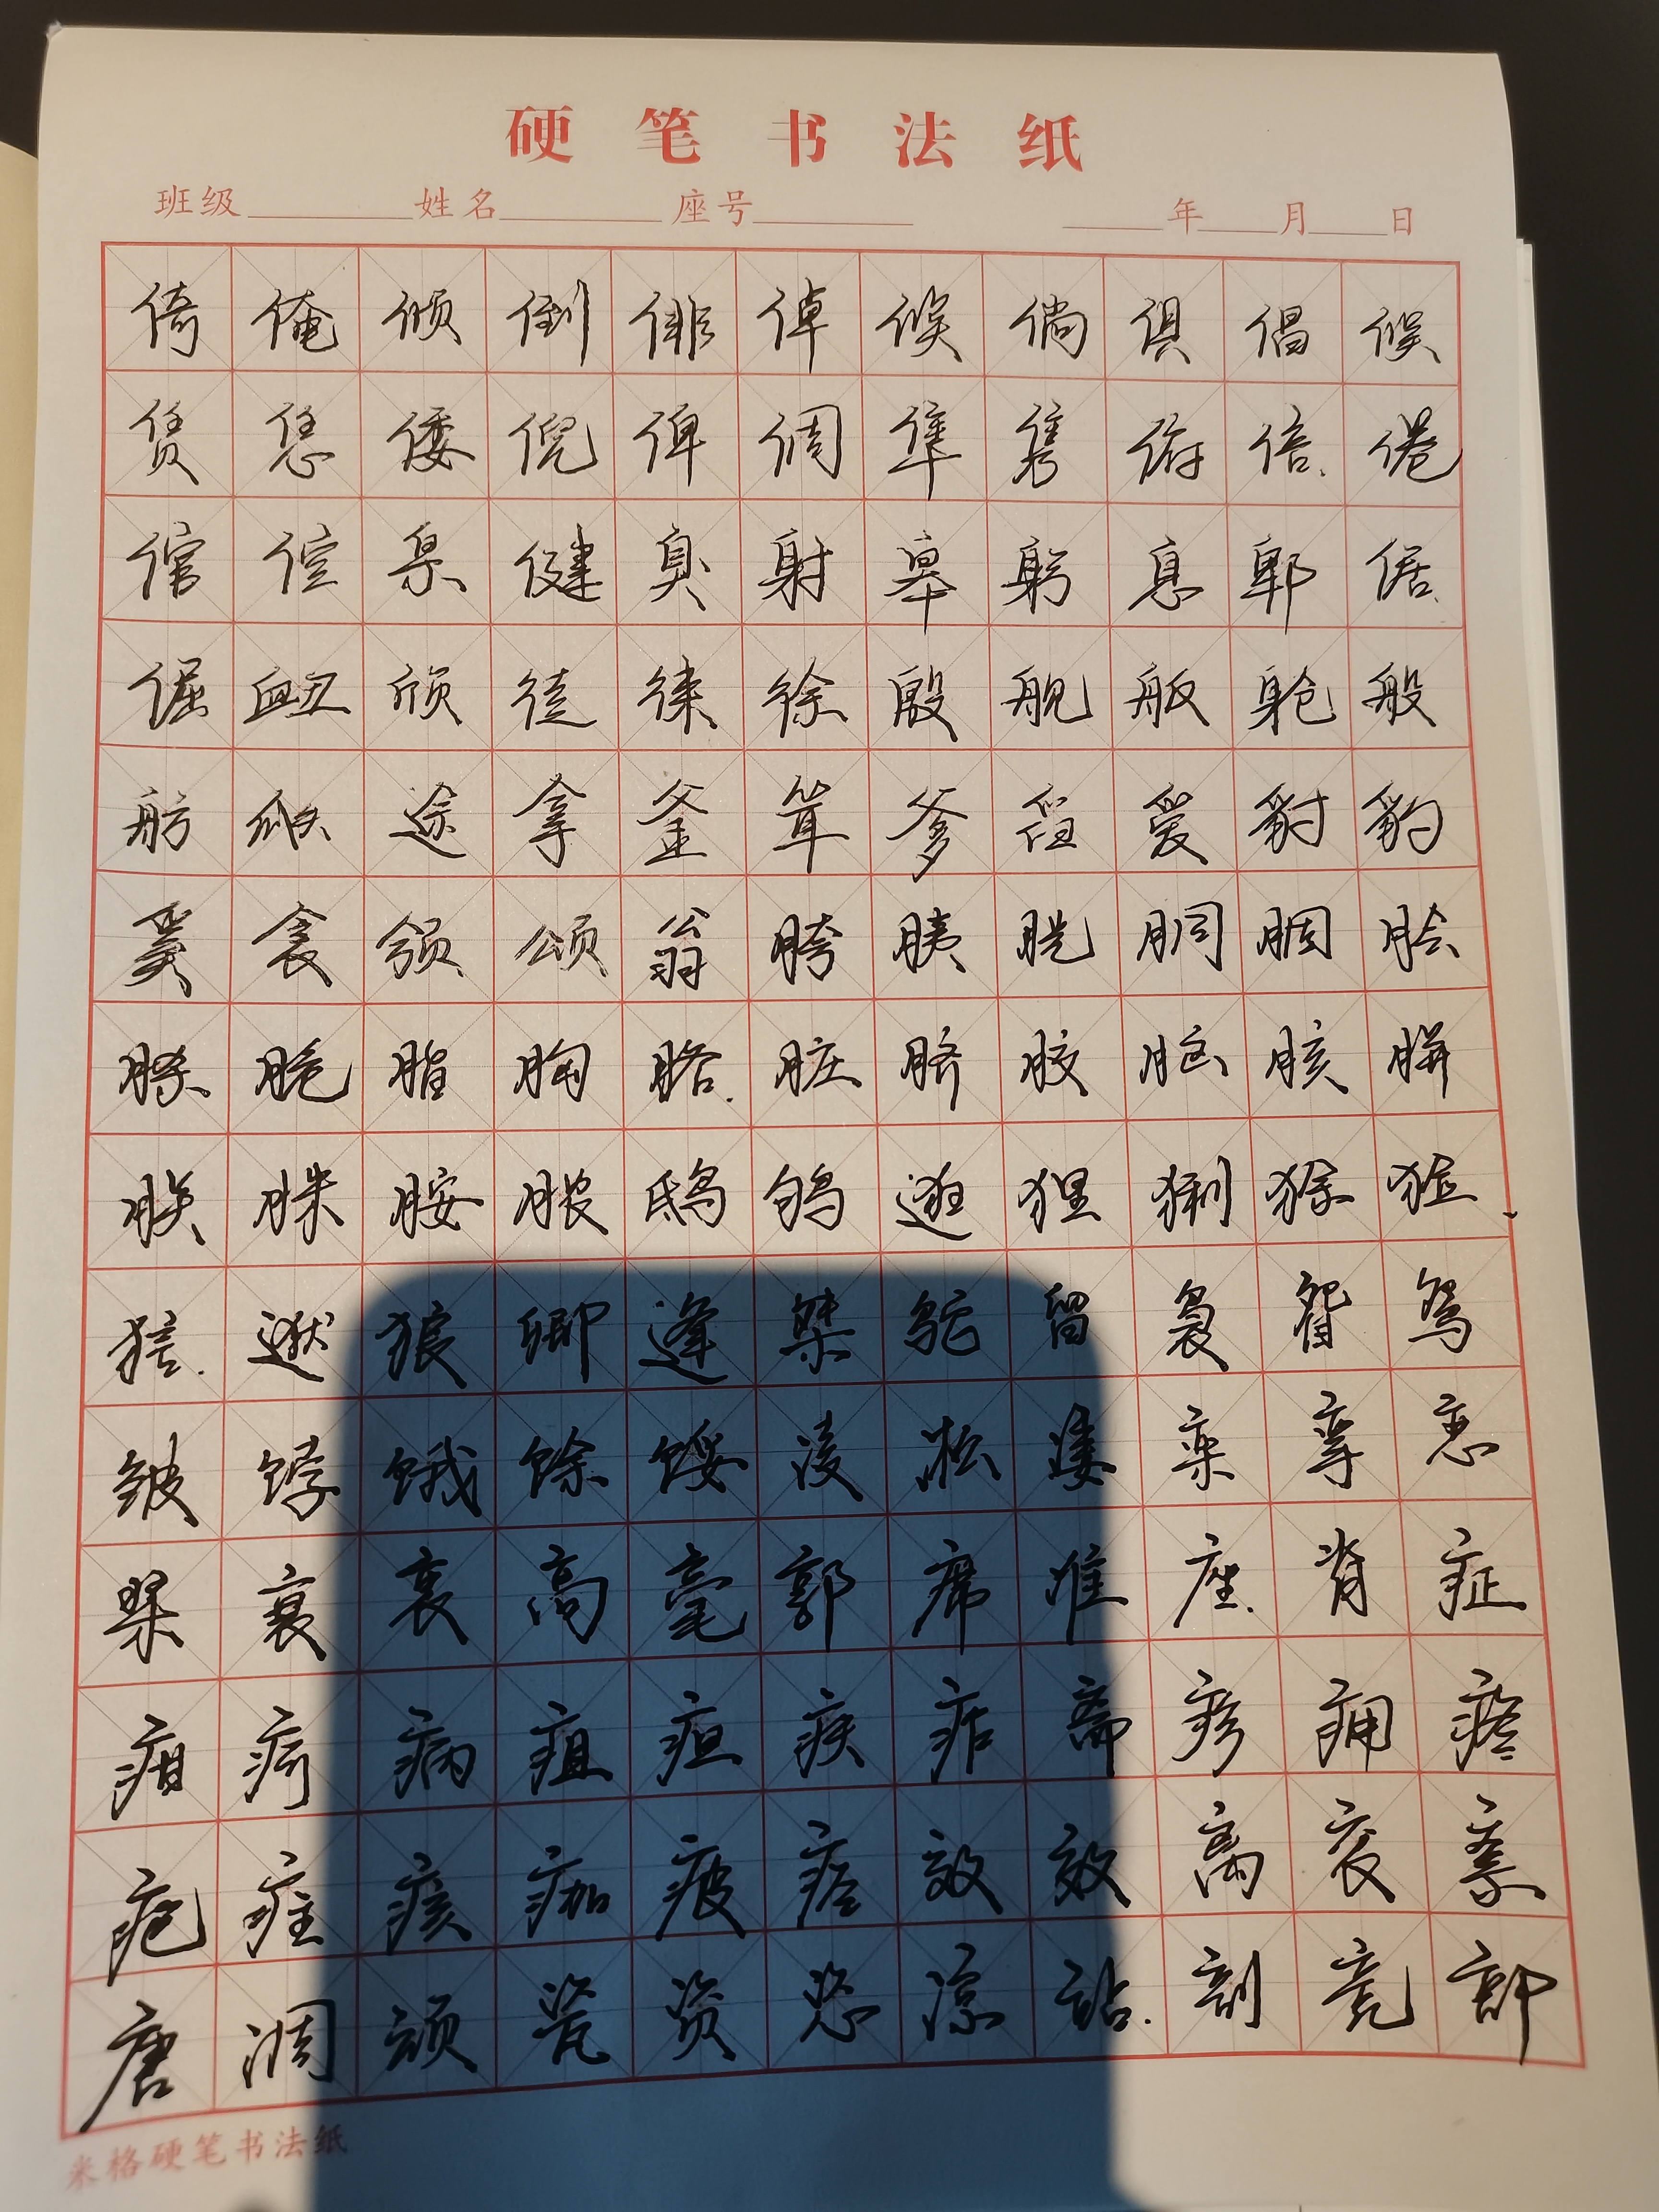 硬笔书法纸
班级 姓名 座号 年 月 日
倚俺倾倒俳倬倏倘俱倡候
赁恁倭倪俾倜隼隽俯倍倦
倌倥臬健臭射皋躬息郫倨
倔衄颀徒徕徐殷舰舨舱般
舫瓞途拿釜耸爹舀爱豺豹
奚衾颁颂翁胯胰胱胴胭脍
脎脆脂胸胳脏脐胶脑胲胼
朕脒胺脓鸱鸲逛狸猁狳猃
狺逖狼卿逢桀鸵留袅眢鸳
皱饽饿馀馁凌凇凄栾挛恋
桨衰衷高亳郭席准座脊症
疳疴病疽疸疾痄斋疹痈疼
疱疰痃痂疲痉效效离衮紊
唐凋颃瓷资恣凉站剖竞部
米格硬笔书法纸